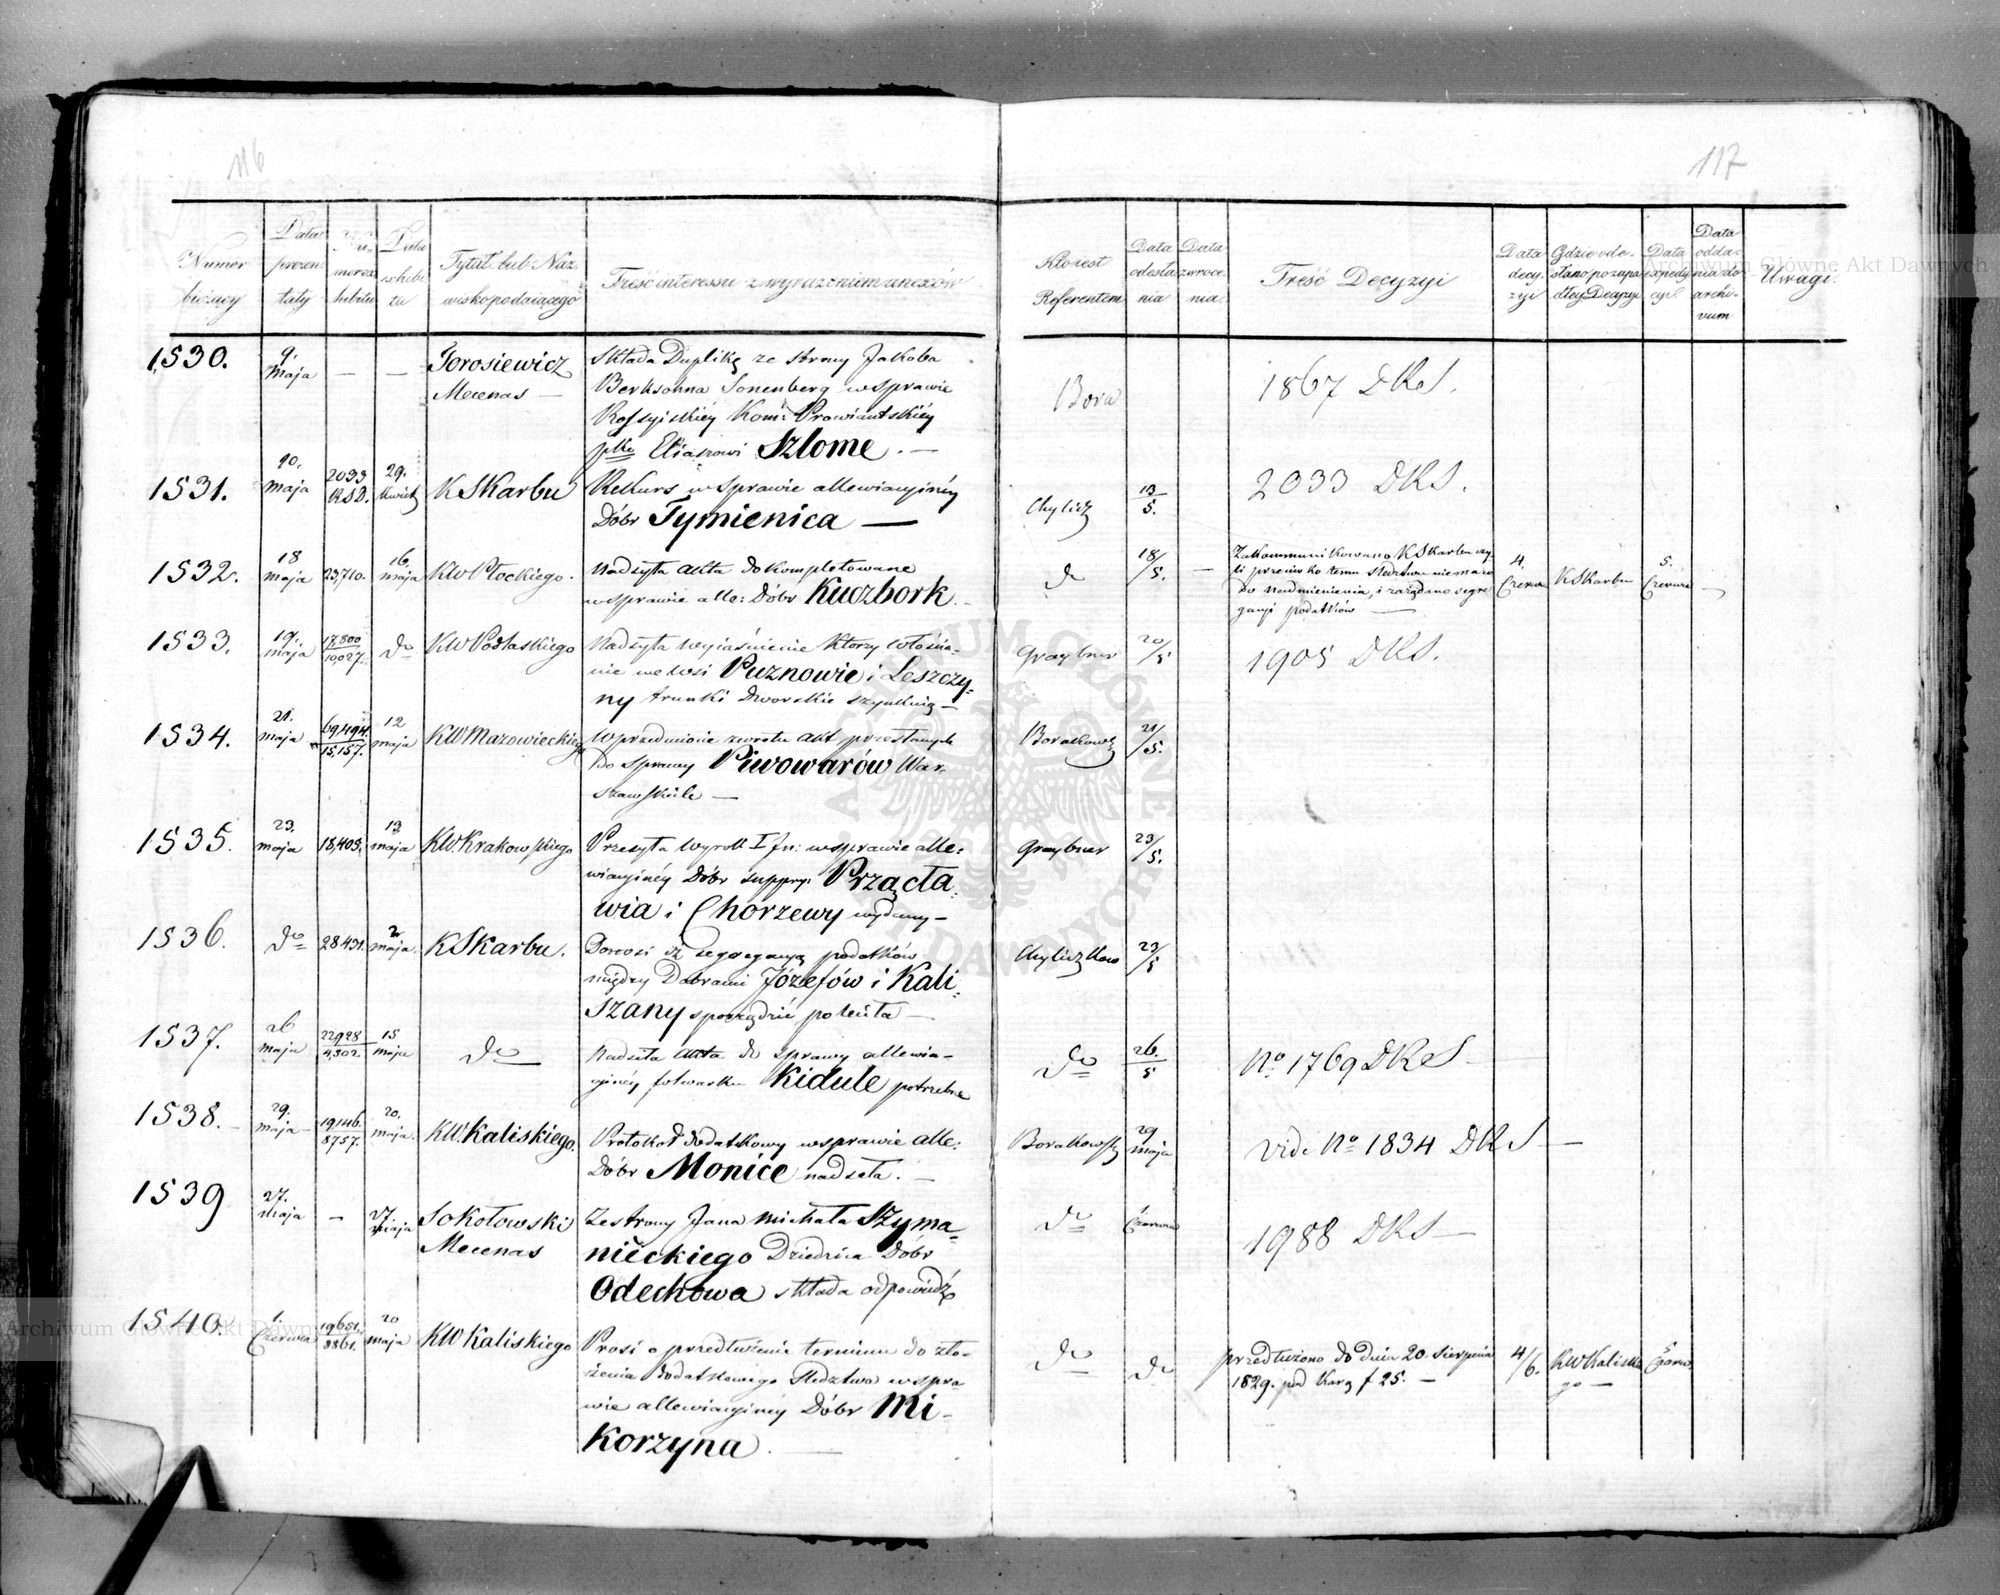 116
117
Numer bieżący
Data prezentaty
Data exhibitu
Tytuł lub Nazwisko podaiącego
Treść interessu z wyrażeniem anexów
Kto iest Referentem
Data odesłania
Data zwrócenia
Treść Decyzyi
Data decyzyi
Data expedycyi
Data oddania do archivum
Uwagi.
1530.
9. Maja
— —
Torosiewicz
Mecenas —
Składa Duplikę ze strony Jakóba
Berksohna Sonenberg w sprawie
Rossyiskiéy Kom: Prowiantskiéy
Eliaszowi Szlome. —
Bora
1867 DKS.
1531.
10. Maja
2033 KSD.
29. Kwiet
K Skarbu
Rekurs w sprawie allewiacyinéy
Dóbr Tymienica —
Chylicz
13/5.
2033 DKS.
1532.
18 Maja
23,710.
16. Maja
KW Płockiego.
Nadsyła akta dokompletowane
w sprawie alle: Dóbr Kuczbork. —
do
18/5.
—
Zakommunikowano K Skarbu czy-
li przeciwko temu śledztwu nie ma co
do nadmienienia, i zażądano segre
gacyi podatków —
4. Czerwca
K Skarbu
5. Czerwca
—
1533.
19. Maja
17,800
10,027.
do
KW Podlaskiego
Nadsyła wyiaśnienie którzy włościa-
nie we wsi Puznowie i Leszczy-
ny trunki Dworskie szynkuią —
Graybner
20/5
1905 DKS.
1534.
21. Maja
69,494.
15,157.
12 Maja
KW Mazowieckiego
W przedmiocie zwrotu akt przesłanych
do sprawy Piwowarów War-
szawskich —
Borakowsk
21/5.
1535.
23. Maja
18,405.
13 Maja
KW. Krakowskiego
Przesyła Wyrok I In: w sprawie alle-
wiacyinéy Dóbr suppry: Prząсła-
wia i Chorzewy wydany —
Graybner
23/5.
1536.
do
28431.
2 Maja.
K Skarbu.
Donosi iż segregacyą podatków
między Dobrami Józefów i Kali-
szany sporządzić poleciła —
Chyliczkow
23/5
1537.
26 Maja
22928
4,302.
15 Maja
do
Nadseła akta do sprawy allewia-
cyinéy folwarku Kidule potrzebne
do
26./5
No. 1769 DKS —
1538.
29. Maja
19,146.
8757.
20. Maja.
KW. Kaliskiego.
Protokół dodatkowy w sprawie alle:
Dóbr Monice nadseła. —
Borakowsk
29 Maja
vide No 1834 DKS —
1539
27. Maja
—
27. Maja
Sokołowski
Mecenas
Ze strony Jana Michała Szyma-
nieckiego Dziedzica Dóbr
Odechowa składa odpowiedź
do
1 Czerwca
1988 DKS —
1540.
1. Czerwca
19651.
8861.
20 Maja
KW Kaliskiego
Prosi o przedłużenie terminu do zło-
żenia dodatkowego śledztwa w spra-
wie allewiacyinéy Dóbr Mi-
korzyna. —
do
do
przedłużono do dnia 20. Sierpnia
1829. pod karą f 25. —
4/6.
KW Kaliskie
go —
5 Czerw
Archiwum Główne Akt Dawnych
Archiwum Główne Akt Dawnych
ARCHIWUM GŁÓWNE AKT DAWNYCH